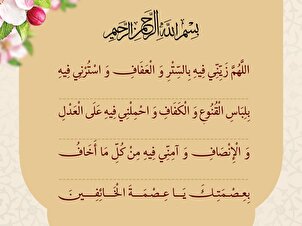 بِسْمِ اللَّهِ الرَّحْمَنِ الرَّحِيمِ
اللَّهُمَّ زَيِّنِّي فِيهِ بِالسِّتْرِ وَ الْعَفَافِ وَ اسْتُرْنِي فِيهِ
بِلِبَاسِ الْقُنُوعِ وَ الْكَفَافِ وَ احْمِلْنِي فِيهِ عَلَى الْعَدْلِ
وَ الْإِنْصَافِ وَ آمِنِّي فِيهِ مِنْ كُلِّ مَا أَخَافُ
بِعِصْمَتِكَ يَا عِصْمَةَ الْخَائِفِينَ